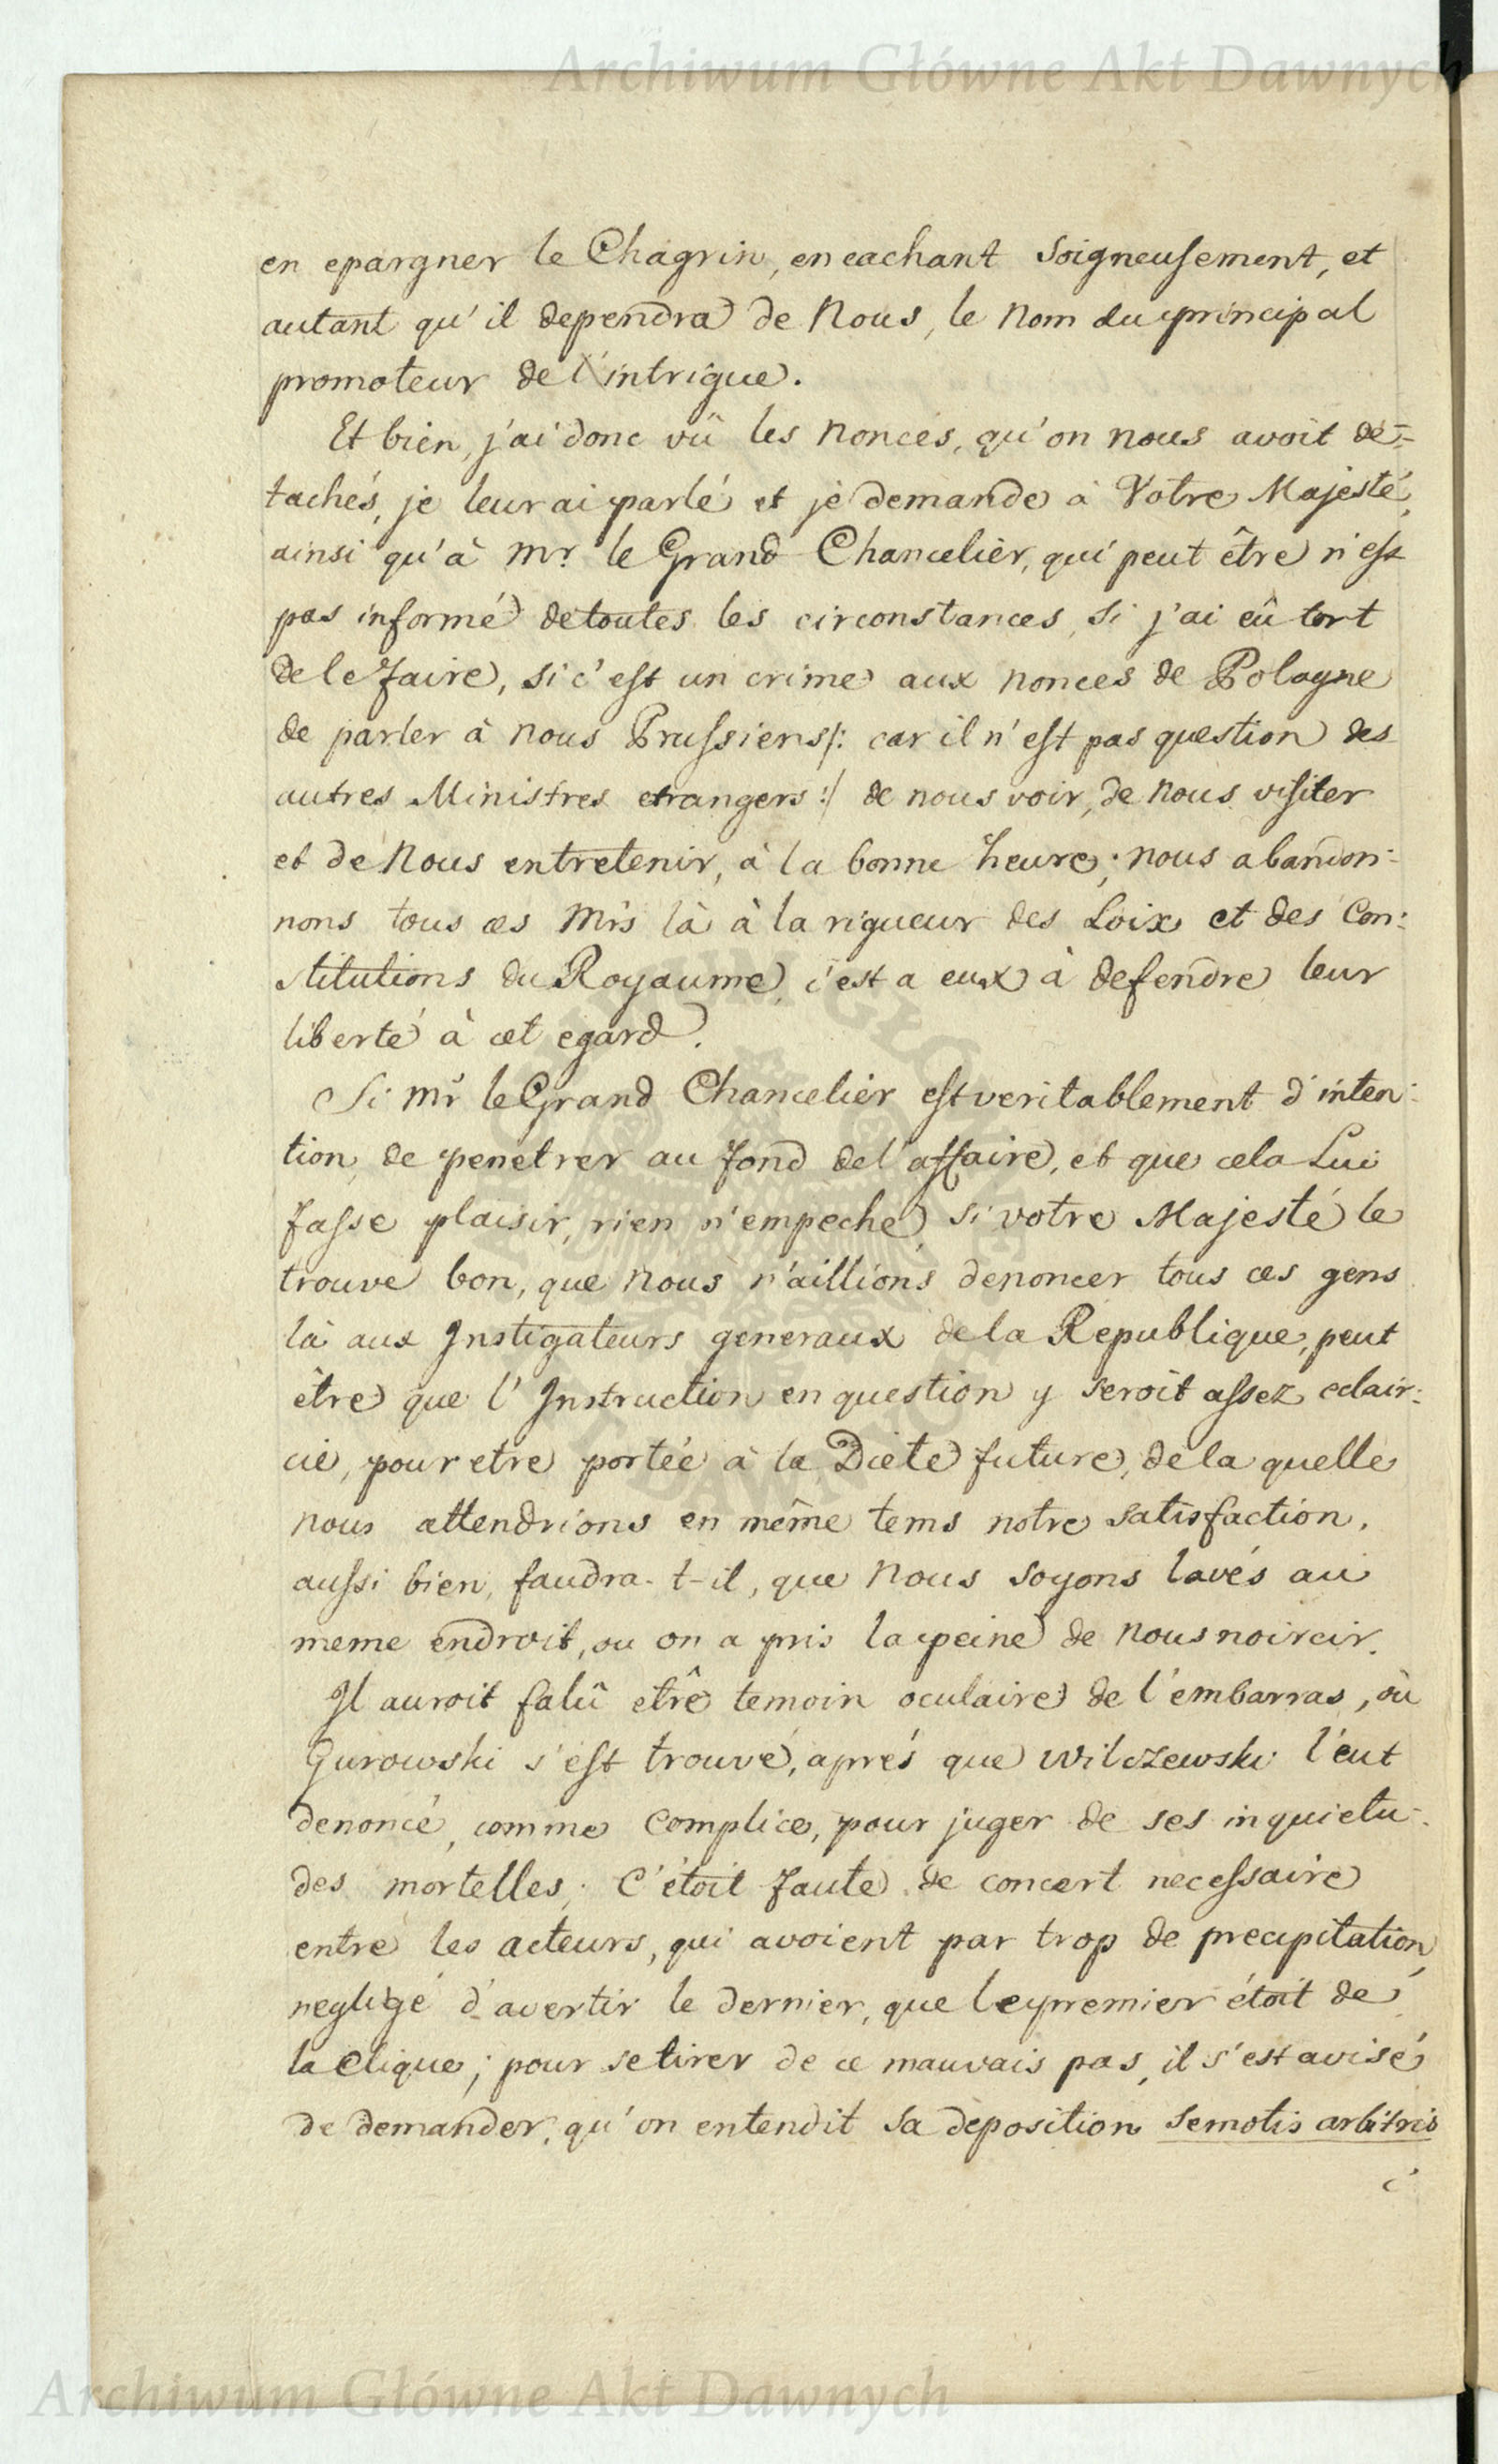 Archiwum Główne Akt Dawnych
en epargner le Chagrin, en cachant soigneusement, et
autant qu'il dependra de Nous, le Nom du principal
promoteur de l'intrigue.
Et bien, j'ai donc vû les Nonces, qu'on nous avoit de-
tachés, je leur ai parlé et je demande à Votre Majesté,
ainsi qu'à Mr. le Grand Chancelier, qui peut être n'est
pas informé de toutes les circonstances, si j'ai eû tort
de le faire, si c'est un crime aux nonces de Pologne
de parler à nous Prussiens /: car il n'est pas question des
autres Ministres etrangers :/ de nous voir, de Nous visiter
et de Nous entretenir, à la bonne heure; nous abandon-
nons tous ces Mrs là à la rigueur des Loix et des Con-
stitutions du Royaume, c'est a eux à defendre leur
liberté à cet egard.
Si Mr le Grand Chancelier est veritablement d'inten-
tion de penetrer au fond de l'affaire, et que cela Lui
fasse plaisir, rien n'empeche, si votre Majesté le
trouve bon, que Nous n'aillions denoncer tous ces gens
là aux Instigateurs generaux de la Republique, peut
être que l'Instruction en question y seroit assez eclair-
cie, pour etre portée à la Diete future, de la quelle
nous attendrions en même tems notre satisfaction.
aussi bien, faudra-t-il, que Nous soyons lavés au
meme endroit, ou on a pris la peine de Nous noircir.
Il auroit falû etrê temoin oculaire de l'embarras, où
Gurowski s'est trouvé, aprés que Wilczewski l'eut
denoncé, comme Complice, pour juger de ses inquietu-
des mortelles; C'étoit faute de concert necessaire
entre les acteurs, qui avoient par trop de precipitation,
negligé d'avertir le dernier, que le premier étoit de
la Clique; pour se tirer de ce mauvais pas, il s'est avisé
de demander, qu'on entendit sa deposition semotis arbitris
c'
Archiwum Główne Akt Dawnych